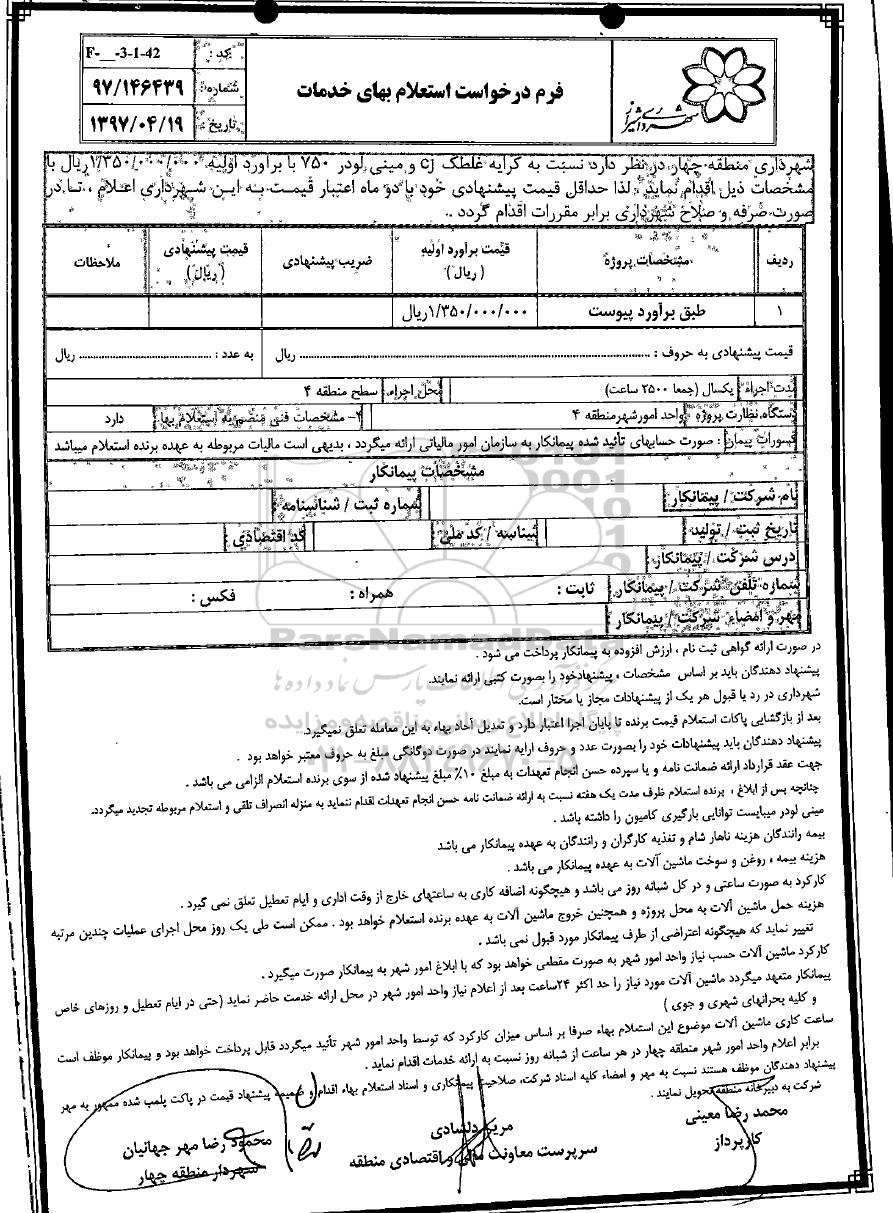 کد : F-__-3-1-42
شماره: ۹۷/۱۴۶۴۳۹
تاریخ : ۱۳۹۷/۰۴/۱۹
فرم درخواست استعلام بهای خدمات
شهرداری شیراز
شهرداری منطقه چهار در نظر دارد نسبت به کرایه غلطک cj و مینی لودر ۷۵۰ با براورد اولیه ۱/۳۵۰/۰۰۰/۰۰۰ریال با
مشخصات ذیل اقدام نماید ، لذا حداقل قیمت پیشنهادی خود با دو ماه اعتبار قیمت به این شهرداری اعلام ، تا در
صورت صرفه و صلاح شهرداری برابر مقررات اقدام گردد ..
ردیف مشخصات پروژه قیمت براورد اولیه (ریال) ضریب پیشنهادی قیمت پیشنهادی (ریال) ملاحظات
۱ طبق برآورد پیوست ۱/۳۵۰/۰۰۰/۰۰۰ریال
قیمت پیشنهادی به حروف : ........ ریال به عدد : ........ ریال
مدت اجراء یکسال (جمعا ۲۵۰۰ ساعت) محل اجراء: سطح منطقه ۴
دستگاه نظارت پروژه واحد امورشهرمنطقه ۴ ۴- مشخصات فنی منضم به استعلام بها: دارد
کسورات پیمان : صورت حسابهای تأئید شده پیمانکار به سازمان امور مالیاتی ارائه میگردد ، بدیهی است مالیات مربوطه به عهده برنده استعلام میباشد
مشخصات پیمانکار
نام شرکت / پیمانکار: شماره ثبت / شناسنامه :
تاریخ ثبت / تولید: شناسه / کد ملی: کد اقتصادی :
ادرس شرکت / پیمانکار:
شماره تلفن شرکت / پیمانکار: ثابت : همراه : فکس :
مهر و امضاء شرکت / پیمانکار :
ParsNamadData
پایگاه اطلاع رسانی مناقصه و مزایده
۰۲۱-۸۸۳۴۹۶۷۰-۵
در صورت ارائه گواهی ثبت نام ، ارزش افزوده به پیمانکار پرداخت می شود .
پیشنهاد دهندگان باید بر اساس مشخصات ، پیشنهادخود را بصورت کتبی ارائه نمایند.
شهرداری در رد یا قبول هر یک از پیشنهادات مجاز یا مختار است.
بعد از بازگشایی پاکات استعلام قیمت برنده تا پایان اجرا اعتبار دارد و تعدیل آحاد بهاء به این معامله تعلق نمیگیرد.
پیشنهاد دهندگان باید پیشنهادات خود را بصورت عدد و حروف ارایه نمایند در صورت دوگانگی مبلغ به حروف معتبر خواهد بود .
جهت عقد قرارداد ارائه ضمانت نامه و یا سپرده حسن انجام تعهدات به مبلغ ۱۰٪ مبلغ پیشنهاد شده از سوی برنده استعلام الزامی می باشد .
چنانچه پس از ابلاغ ، برنده استعلام ظرف مدت یک هفته نسبت به ارائه ضمانت نامه حسن انجام تعهدات اقدام ننماید به منزله انصراف تلقی و استعلام مربوطه تجدید میگردد.
مینی لودر میبایست توانایی بارگیری کامیون را داشته باشد .
بیمه رانندگان هزینه ناهار شام و تغذیه کارگران و رانندگان به عهده پیمانکار می باشد
هزینه بیمه ، روغن و سوخت ماشین آلات به عهده پیمانکار می باشد .
کارکرد به صورت ساعتی و در کل شبانه روز می باشد و هیچگونه اضافه کاری به ساعتهای خارج از وقت اداری و ایام تعطیل تعلق نمی گیرد .
هزینه حمل ماشین آلات به محل پروژه و همچنین خروج ماشین آلات به عهده برنده استعلام خواهد بود . ممکن است طی یک روز محل اجرای عملیات چندین مرتبه
تغییر نماید که هیچگونه اعتراضی از طرف پیمانکار مورد قبول نمی باشد .
کارکرد ماشین آلات حسب نیاز واحد امور شهر به صورت مقطعی خواهد بود که با ابلاغ امور شهر به پیمانکار صورت میگیرد .
پیمانکار متعهد میگردد ماشین آلات مورد نیاز را حد اکثر ۲۴ساعت بعد از اعلام نیاز واحد امور شهر در محل ارائه خدمت حاضر نماید (حتی در ایام تعطیل و روزهای خاص
و کلیه بحرانهای شهری و جوی )
ساعت کاری ماشین آلات موضوع این استعلام بهاء صرفا بر اساس میزان کارکرد که توسط واحد امور شهر تأئید میگردد قابل پرداخت خواهد بود و پیمانکار موظف است
برابر اعلام واحد امور شهر منطقه چهار در هر ساعت از شبانه روز نسبت به ارائه خدمات اقدام نماید .
پیشنهاد دهندگان موظف هستند نسبت به مهر و امضاء کلیه اسناد شرکت، صلاحیت پیمانکاری و اسناد استعلام بهاء اقدام و ضمیمه پیشنهاد قیمت در پاکت پلمب شده ممهور به مهر
شرکت به دبیرخانه منطقه تحویل نمایند .
محمد رضا معینی
کارپرداز
مریم دلشادی
سرپرست معاونت مالی و اقتصادی منطقه
محمود رضا مهر جهانیان
شهردار منطقه چهار